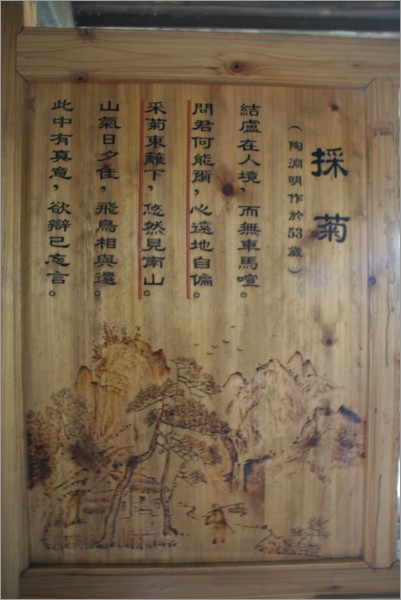 採菊
（陶淵明作於53歲）
結盧在人境，而無車馬喧。
問君何能爾，心遠地自偏。
采菊東籬下，悠然見南山。
山氣日夕佳，飛鳥相與還。
此中有真意，欲辯已忘言。